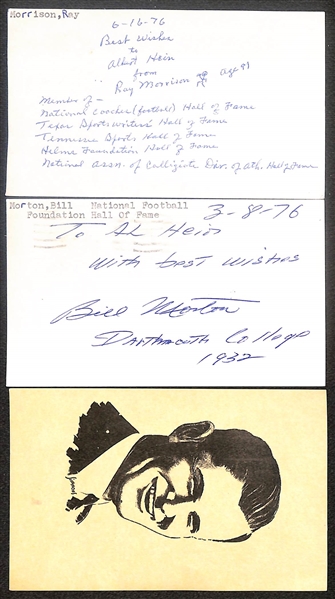 Morrison,Ray
6-16-76
Best Wishes
to
Albert Hein
from
Ray Morrison age 91
Member of -
National Coaches (football) Hall of Fame
Texas Sportswriters' Hall of Fame
Tennessee Sports Hall of Fame
Helms Foundation Hall of Fame
National Assn. of Collegiate Dirs. of Ath. Hall of Fame
Morton,Bill National Football
Foundation Hall Of Fame
3-8-76
To Al Hein
With best wishes
Bill Morton
Dartmouth College
1932